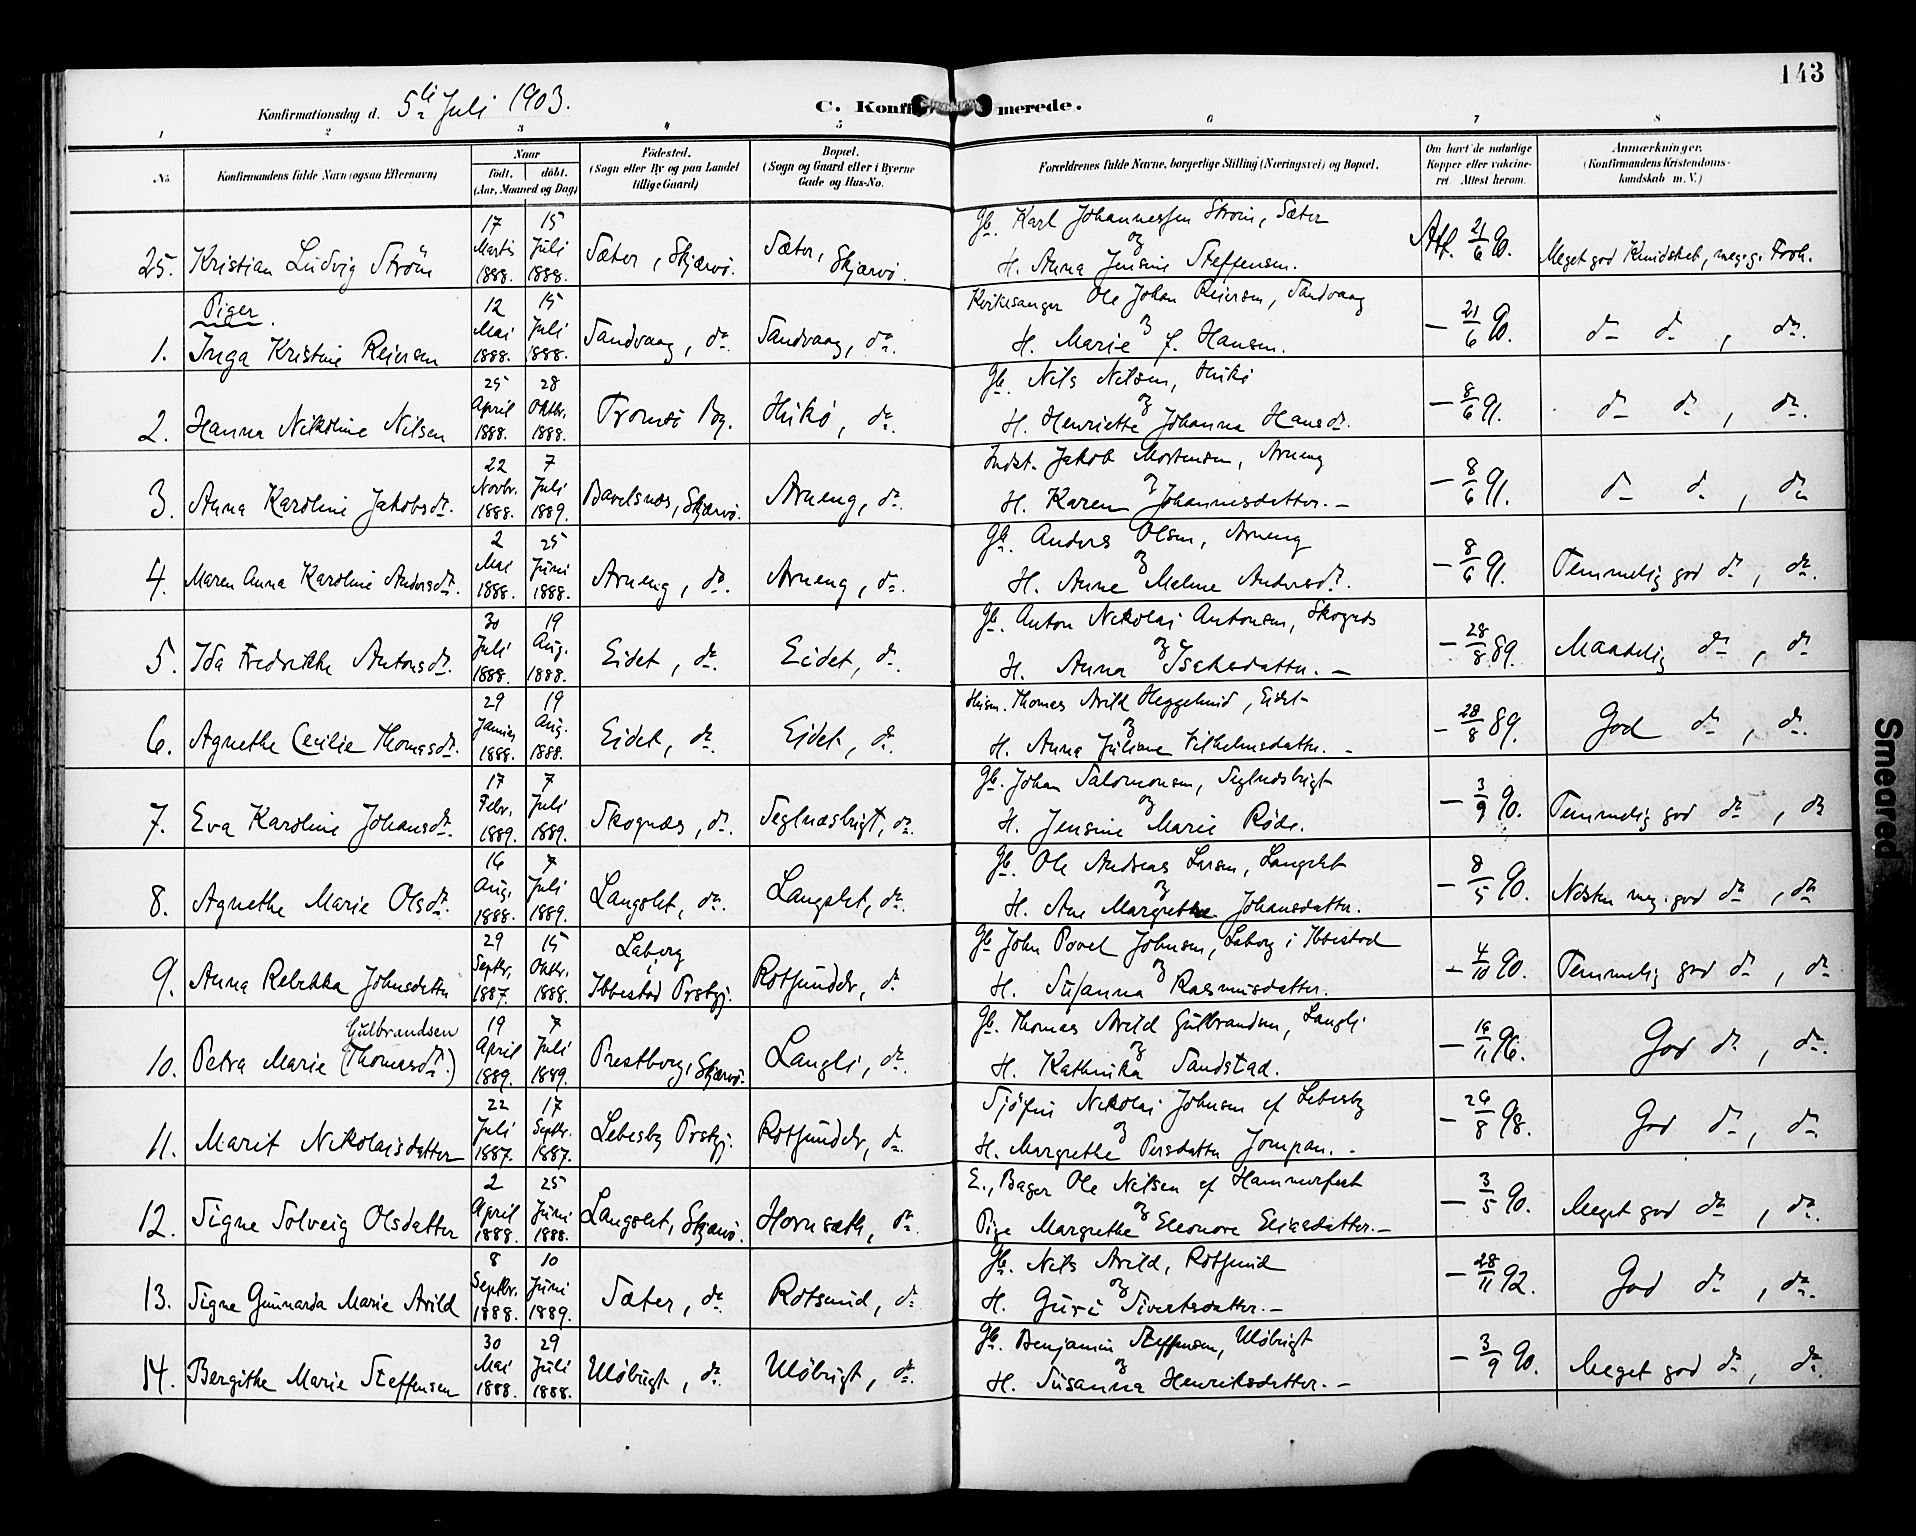 143
Konfirmationsdag d. 5te Juli 1903.
C. Konfirmerede.
1 2 3 4 5 6 7 8
No.
Konfirmandens fulde Navn (ogsaa Efternavn)
Naar
født. døbt.
(Aar, Maaned og Dag)
Fødested.
(Sogn eller By og paa Landet
tillige Gaard)
Bopæl.
(Sogn og Gaard eller i Byerne
Gade og Hus-No.
Forældrenes fulde Navne, borgerlige Stilling (Næringsvei) og Bopæl.
Om havt de naturlige
Kopper eller vakcine-
ret. Attest herom.
Anmærkninger.
(Konfirmandens Kristendoms-
kundskab m. V.)
25. Kristian Ludvig Strøm 17 Marts 1888. 15 Juli 1888. Sæter, Skjærvø. Sæter, Skjærvø. Gb. Karl Johannessen Strøm, Sæter
og
H. Anna Jensine Steffensen. Att. 21/6 90. Meget god Kundskab, meg. g. Forh.
Piger.
1. Inga Kristine Reiersen 12 Mai 1888. 15 Juli 1888. Sandvaag, do. Sandvaag, do. Ole Johan Reiersen, Sandvaag
og
H. Marie f. Hansen. — 21/6 90. do do, do.
2. Hanna Nikoline Nilsen 25 April 1888. 28 Oktbr. 1888. Tromsø By. Hukø, do. Gb. Nils Nilsen, Hukø
og
H. Henriette Johanna Hansdr. — 8/6 91. do do, do.
3. Anna Karoline Jakobsdr. 22 Novbr. 1888. 7 Juli 1889. Bavelsnæs, Skjærvø. Arneng, do. Indst. Jakob Mortensen, Arneng
og
H. Karen Johannesdatter. — — 8/6 91. do do, do
4. Maren Anna Karoline Andersdr. 2 Mai 1888. 25 Juni 1888. Arneng, do. Arneng, do. Gb. Anders Olsen, Arneng
og
H. Anne Malene Andersdr. — 8/6 91. Temmelig god do, do.
5. Ida Fredrikke Antonsdr. 30 Juli 1888. 19 Aug. 1888. Eidet, do. Eidet, do. Gb. Anton Nikolai Antonsen, Skognæs
og
H. Anna Isaksdatter. — — 28/8 89. Maadelig do, do
6. Agnethe Cecilie Thomasdr. 29 Januar 1888. 19 Aug. 1888. Eidet, do. Eidet, do. Husm. Thomas Arild Heggelund, Eidet
og
H. Anna Juliane Vilhelmsdatter. — — 28/8 89. God do, do.
7. Eva Karoline Johansdr. 17 Febr. 1889. 7 Juli 1889. Skognæs, do. Seglnæsbugt, do. Gb. Johan Salomonsen, Seglnæsbugt
og
H. Jensine Marie Røde. — 3/9 90. Temmelig god do, do
8. Agnethe Marie Olsdr. 16 Aug. 1888. 7 Juli 1889. Langslet, do. Langslet, do. Gb. Ole Andreas Larsen, Langslet
og
H. Ane Margrethe Johansdatter. — 8/5 90. Næsten meg. god do, do
9. Anna Rebekka Johnsdatter 29 Septbr. 1887. 15 Oktbr. 1888. Laberg
i
Ibbestad Prstgj. Rotsundelv, do Gb. John Povel Johnsen, Laberg i Ibbestad
og
H. Susanna Rasmusdatter. — 4/10 90. Temmelig god do, do
10. Petra Marie Gulbrandsen (Thomasdr.) 19 April 1889. 7 Juli 1889. Prestborg, Skjærvø. Langli, do. Gb. Thomas Arild Gulbrandsen, Langli
og
H. Kathinka Sandstad. — 16/11 96. God do, do.
11. Marit Nikolaisdatter 22 Juli 1887. 17 Septbr. 1887. Lebesby Prstgj. Rotsundelv, do. Sjøfin Nikolai Johnsen af Lebesby
og
H. Margrethe Persdatter Jompan. — — 26/8 98. God do, do
12. Signe Solveig Olsdatter 2 April 1888. 25 Juni 1888. Langslet, Skjærvø. Hornsæth, do. E., Bager Ole Nilsen af Hammerfest
og
Pige Margrethe Eleonore Eliasdatter. — — 3/5 90. Meget god do, do.
13. Signe Gunnarda Marie Arild 8 Septbr. 1888. 10 Juni 1889. Sæter, do. Rotsund, do Gb. Nils Arild, Rotsund
og
H. Guri Sivertsdatter. — — 28/11 92. God do, do.
14. Bergithe Marie Steffensen 30 Mai 1888. 29 Juli 1888. Uløbugt, do. Uløbugt, do. Gb. Benjamin Steffensen, Uløbugt
og
H. Susanna Henriksdatter. — — 3/9 90. Meget god do, do.
Smeared